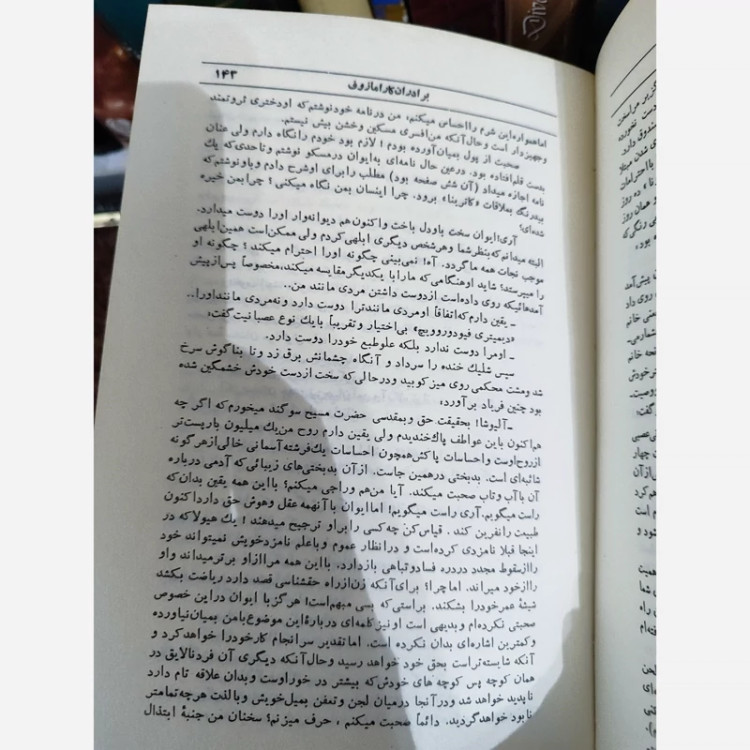 برادران کارامازوفی
۱۴۳
اما همواره این شرم را احساس میکنم، من در نامه خود نوشتم که او دختری ثروتمند
و جهیزدار است و حال آنکه من افسری مسکین و خشن بیش نیستم.
صحبت از پول بمیان آورده بودم! لازم بود خودم را نگاه دارم ولی عنان
بدست قلم افتاده بود. در عین حال نامه‌ای به ایوان در مسکو نوشتم و تا حدی که یك
نامه اجازه میداد (آن شش صفحه بود) مطلب را برای او شرح دادم و باو نوشتم که
بیدرنگ بملاقات «کاترینا» برود. چرا اینسان بمن نگاه میکنی؟ چرا بمن خیره
شده‌ای؟
آری! ایوان سخت باو دل باخت و اکنون هم دیوانه‌وار او را دوست میدارد.
البته میدانم که بنظر شما و هر شخص دیگری ابلهی کردم ولی ممکن است همین ابلهی
موجب نجات همه ما گردد. آه! نمی‌بینی چگونه او را احترام میکند؟ چگونه او
را میپرستد؟ شاید او هنگامی که ما را با یکدیگر مقایسه میکند، مخصوصاً پس از پیش
آمدهائیکه روی داده است از دوست داشتن مردی مانند من..
ـ یقین دارم که اتفاقاً او مردی مانند ترا دوست دارد و نه مردی مانند او را..
«دیمیتری فیودوروویچ» بی‌اختیار و تقریباً با یك نوع عصبانیت گفت:
ـ او مرا دوست ندارد بلکه علو طبع خود را دوست دارد.
سپس شلیك خنده را سر داد و آنگاه چشمانش برق زد و تا بناگوش سرخ
شد و مشت محکمی روی میز کوبید و در حالی که سخت از دست خودش خشمگین شده
بود چنین فریاد برآورد:
ـ آلیوشا! بحقیقت حق و بمقدسی حضرت مسیح سوگند میخورم که اگر چه
هم اکنون باین عواطف پاك خندیدم ولی یقین دارم روح من یك میلیون بار پست‌تر
از روح اوست و احساسات پاکش همچون احساسات یك فرشته آسمانی خالی از هرگونه
شائبه‌ای است. بدبختی در همین جاست. از آن بدبختی‌های زیبائی که آدمی درباره
آن با آب و تاب صحبت میکند. آیا من هم وراجی میکنم؟ با این همه یقین بدان که
راست میگویم. آری راست میگویم! اما ایوان با آنهمه عقل و هوش حق دارد اکنون
طبیعت را نفرین کند. قیاس کن چه کسی را بر او ترجیح میدهند؟ یك هیولا که در
اینجا قبلا نامزدی کرده است و در انظار عموم و با علم نامزد خویش نمیتواند خود
را از سقوط مجدد در دره فساد و تباهی بازدارد. با این همه مرا از او برتر میداند و او
را از خود میراند. اما چرا؟ برای آنکه زن از راه حقشناسی قصد دارد ریاضت بکشد
شیشهٔ عمر خود را بشکند. براستی که بسی مبهم است! هرگز با ایوان در این خصوص
صحبتی نکرده‌ام و بدیهی است او نیز کلمه‌ای دربارهٔ این موضوع با من بمیان نیاورده
و کمترین اشاره‌ای بدان نکرده است. اما تقدیر سرانجام کار خود را خواهد کرد و
آنکه شایسته‌تر است بحق خود خواهد رسید و حال آنکه دیگری آن فرد نالایق در
همان کوچه پس کوچه های خودش که بیشتر در خور اوست و بدان علاقه تام دارد
ناپدید خواهد شد و در آنجا در میان لجن و تعفن بمیل خویش و با لذت هر چه تمامتر
نابود خواهد گردید. دائماً صحبت میکنم، حرف میزنم؟ سخنان من جنبهٔ ابتذال